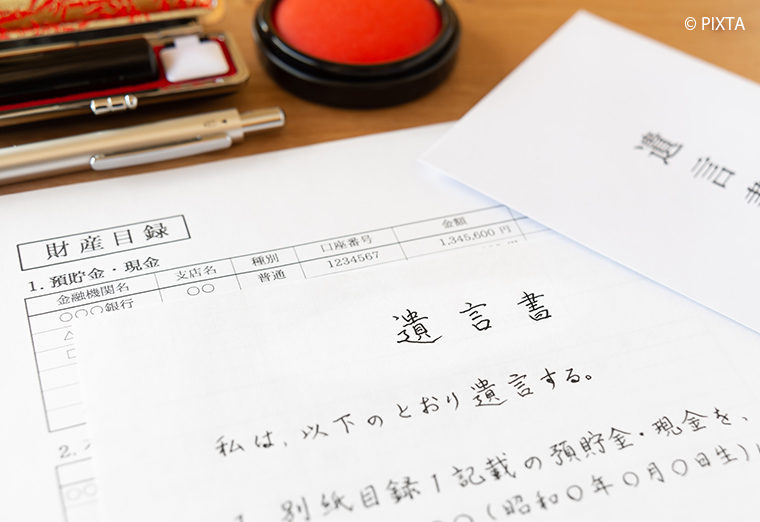 © PIXTA
遺言
財産目録
1. 預貯金・現金
金融機関名 支店名 種別 口座番号 金額
○○○銀行 ○○ 普通 1234567 1,345,600 円
2.
遺言書
私は、以下のとおり遺言する。
別紙目録1記載の預貯金・現金を、
(昭和○年○月○日生)